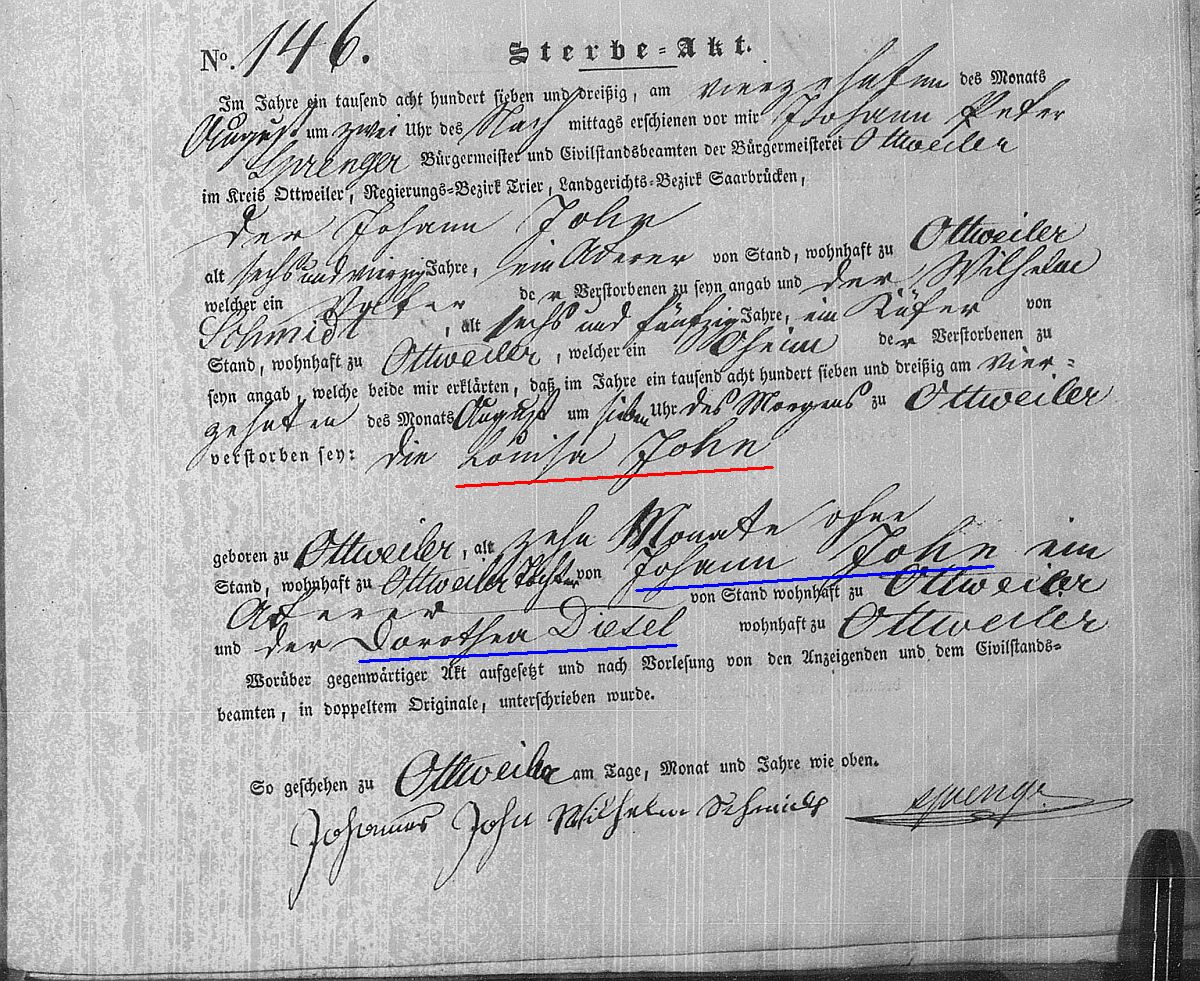 No. 146. Sterbe-Akt.
Im Jahre ein tausend acht hundert sieben und dreißig, am vierzehnten des Monats
August um zwei Uhr des Nach mittags erschienen vor mir Johann Peter
Sprenger Bürgermeister und Civilstandsbeamten der Bürgermeisterei Ottweiler
im Kreis Ottweiler, Regierungs-Bezirk Trier, Landgerichts-Bezirk Saarbrücken,
der Johann John
alt sechs und vierzig Jahre, ein Ackerer von Stand, wohnhaft zu Ottweiler
welcher ein Vatter der Verstorbenen zu seyn angab und der Wilhelm
Schmidt, alt sechs und fünfzig Jahre, ein Küfer von
Stand, wohnhaft zu Ottweiler, welcher ein Oheim der Verstorbenen zu
seyn angab, welche beide mir erklärten, daß im Jahre ein tausend acht hundert sieben und dreißig am vier-
zehnten des Monats August um sieben Uhr des Morgens zu Ottweiler
verstorben sey: die Louisa John
geboren zu Ottweiler, alt zehn Monate ohne
Stand, wohnhaft zu Ottweiler Tochter von Johann John ein
Ackerer von Stand wohnhaft zu Ottweiler
und der Dorothea Diesel wohnhaft zu Ottweiler
Worüber gegenwärtiger Akt aufgesetzt und nach Vorlesung von den Anzeigenden und dem Civilstands-
beamten, in doppeltem Originale, unterschrieben wurde.
So geschehen zu Ottweiler am Tage, Monat und Jahre wie oben.
Johannes John Wilhelm Schmidt Sprenger